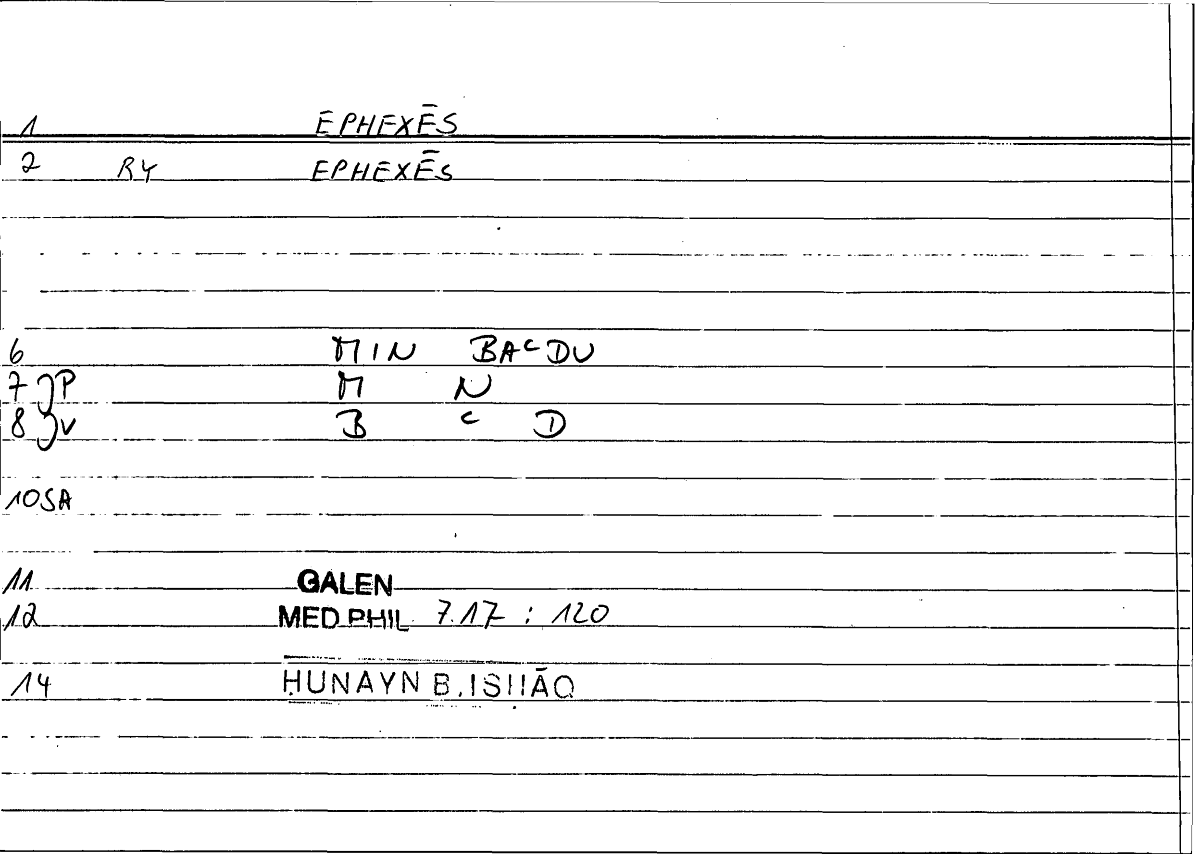 1 EPHEXĒS
2 R4 EPHEXĒS
6 MIN BAᶜDU
7 P M N
8 V B ᶜ D
10SA
11 GALEN
12 MED PHIL 7.17 : 120
14 HUNAYN B. ISḤĀQ